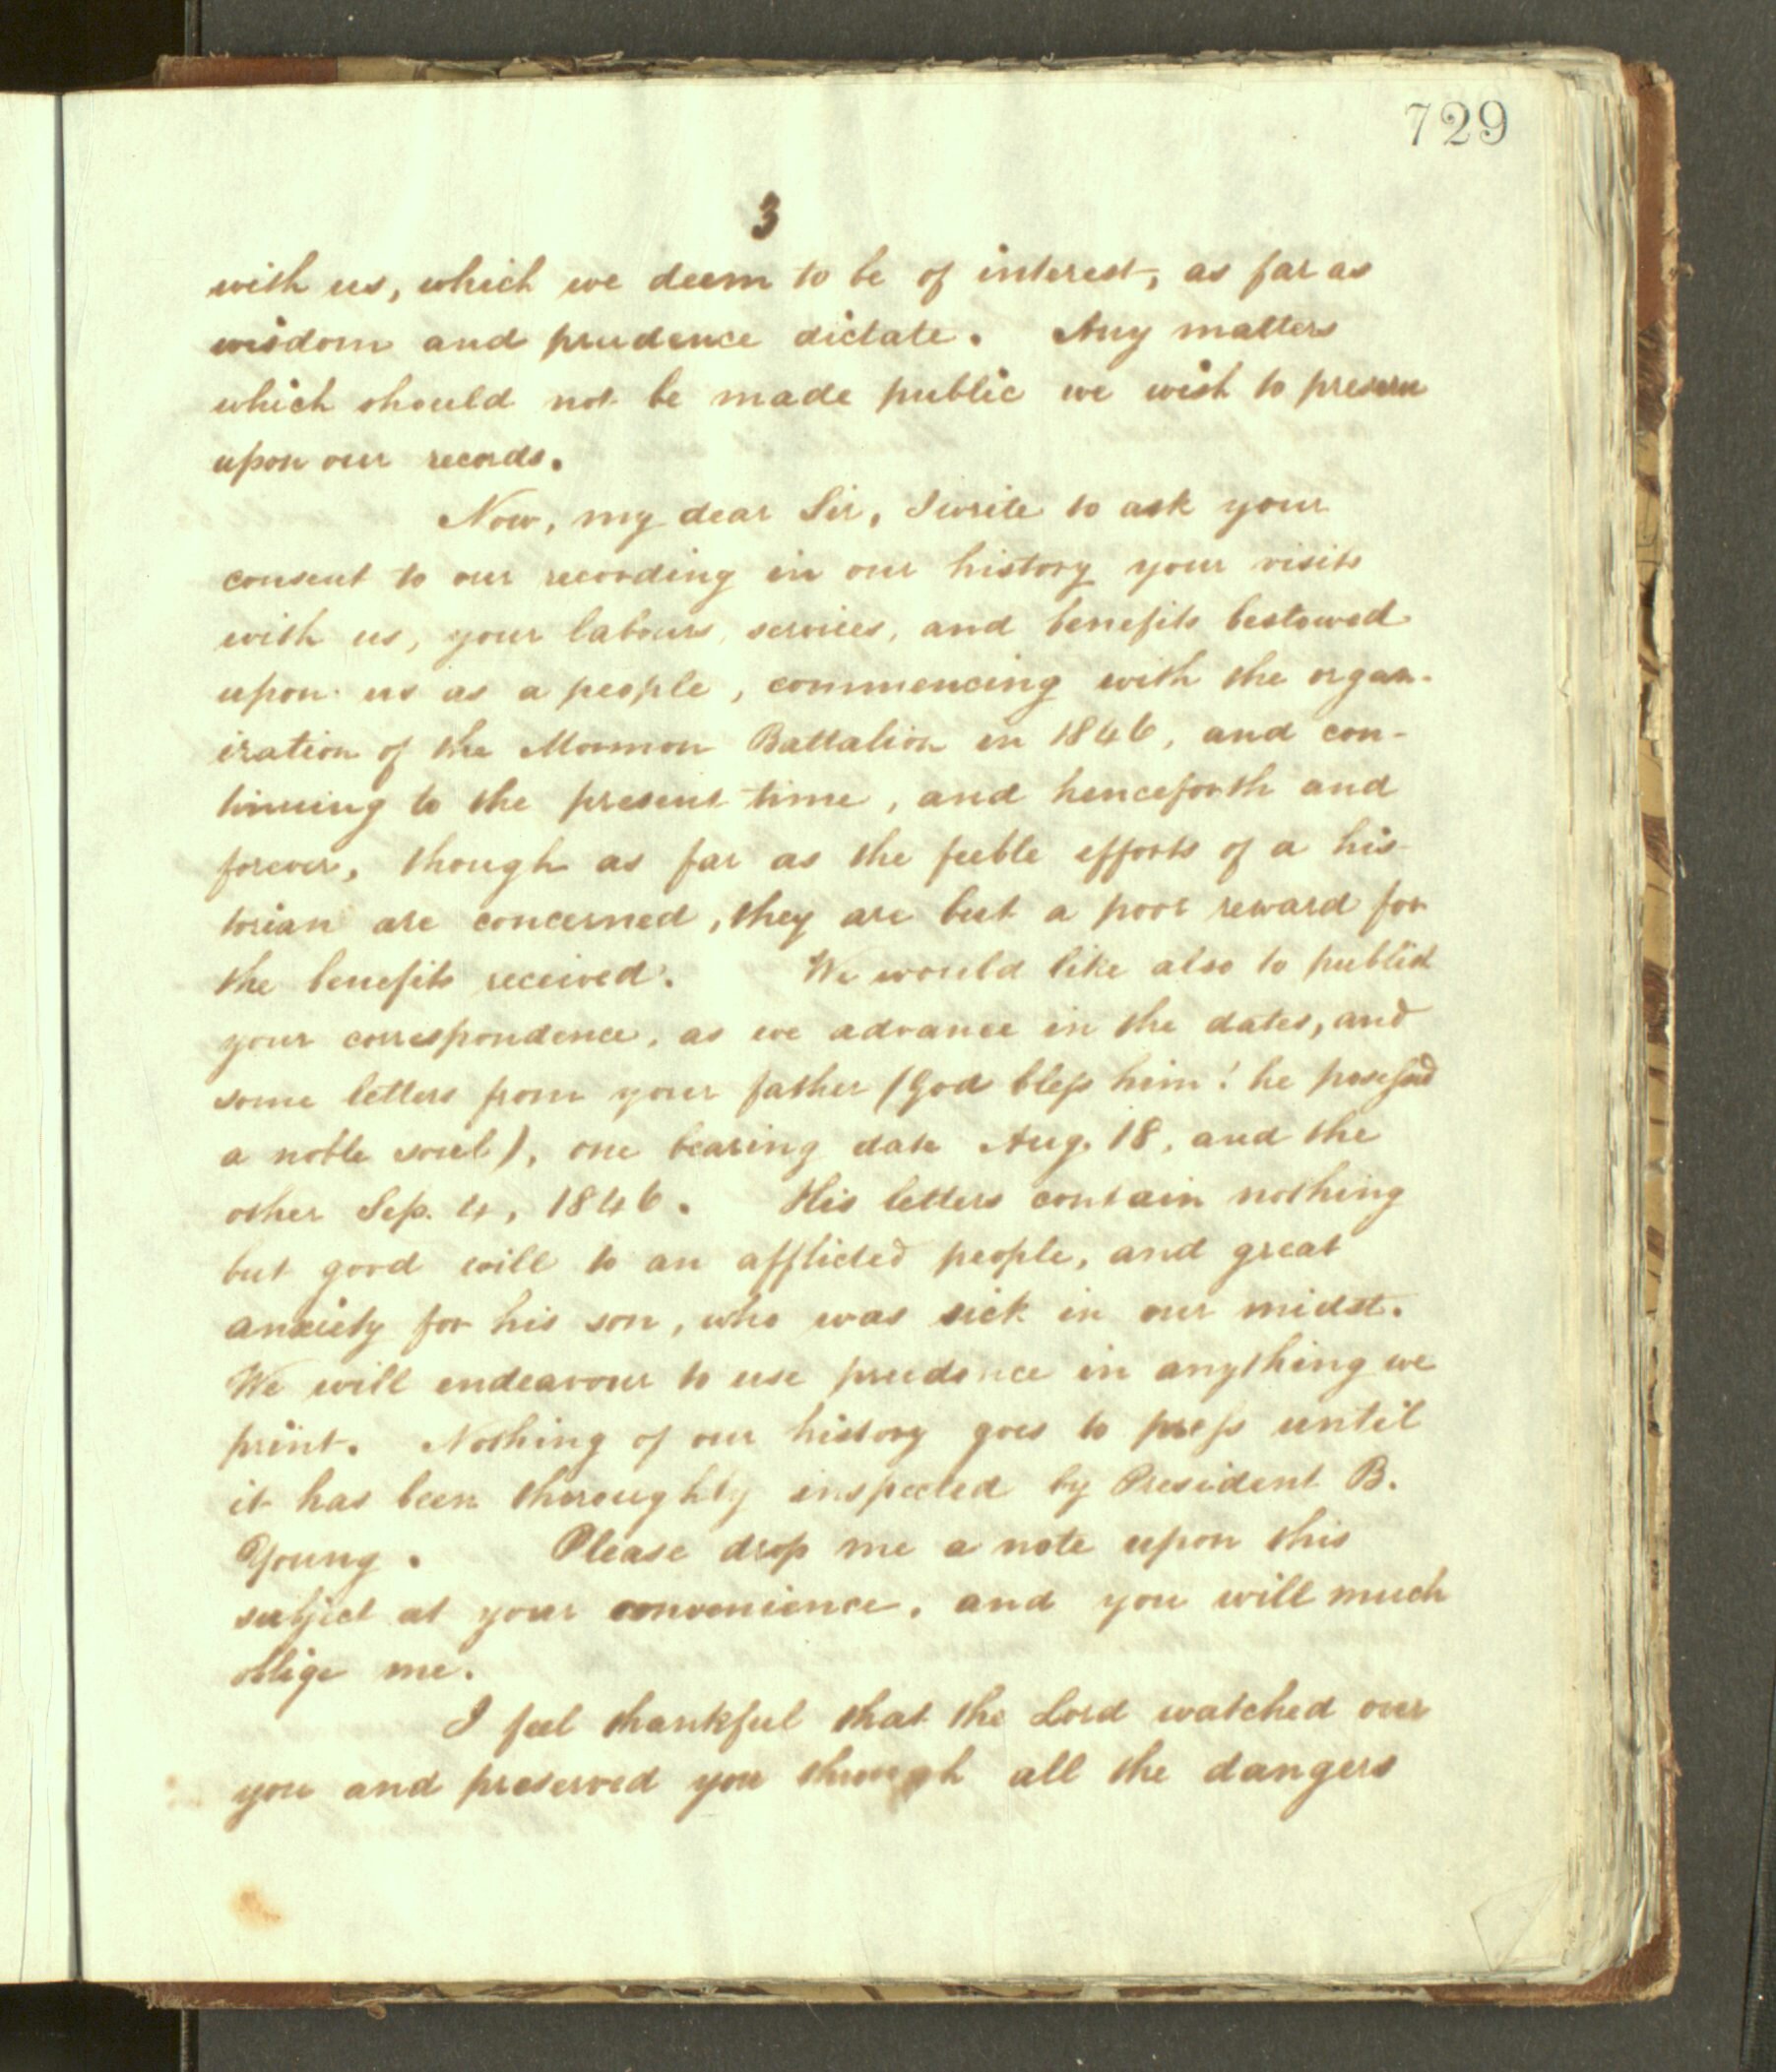 729
3
with us, which we deem to be of interest, as far as
wisdom and prudence dictate. Any matters
which should not be made public we wish to preserve
upon our records.
Now, my dear Sir, I write to ask your
consent to our recording in our history your visits
with us, your labours, services, and benefits bestowed
upon us as a people, commencing with the organ-
ization of the Mormon Battalion in 1846, and con-
tinuing to the present time, and henceforth and
forever, though as far as the feeble efforts of a his-
torian are concerned, they are but a poor reward for
the benefits received. We would like also to publish
your correspondence, as we advance in the dates, and
some letters from your father (God bless him! he possessed
a noble soul), one bearing date Aug. 18, and the
other Sep. 4, 1846. His letters contain nothing
but good will to an afflicted people, and great
anxiety for his son, who was sick in our midst.
We will endeavour to use prudence in anything we
print. Nothing of our history goes to press until
it has been thoroughly inspected by President B.
Young. Please drop me a note upon this
subject at your convenience, and you will much
oblige me.
I feel thankful that the Lord watched over
you and preserved you through all the dangers